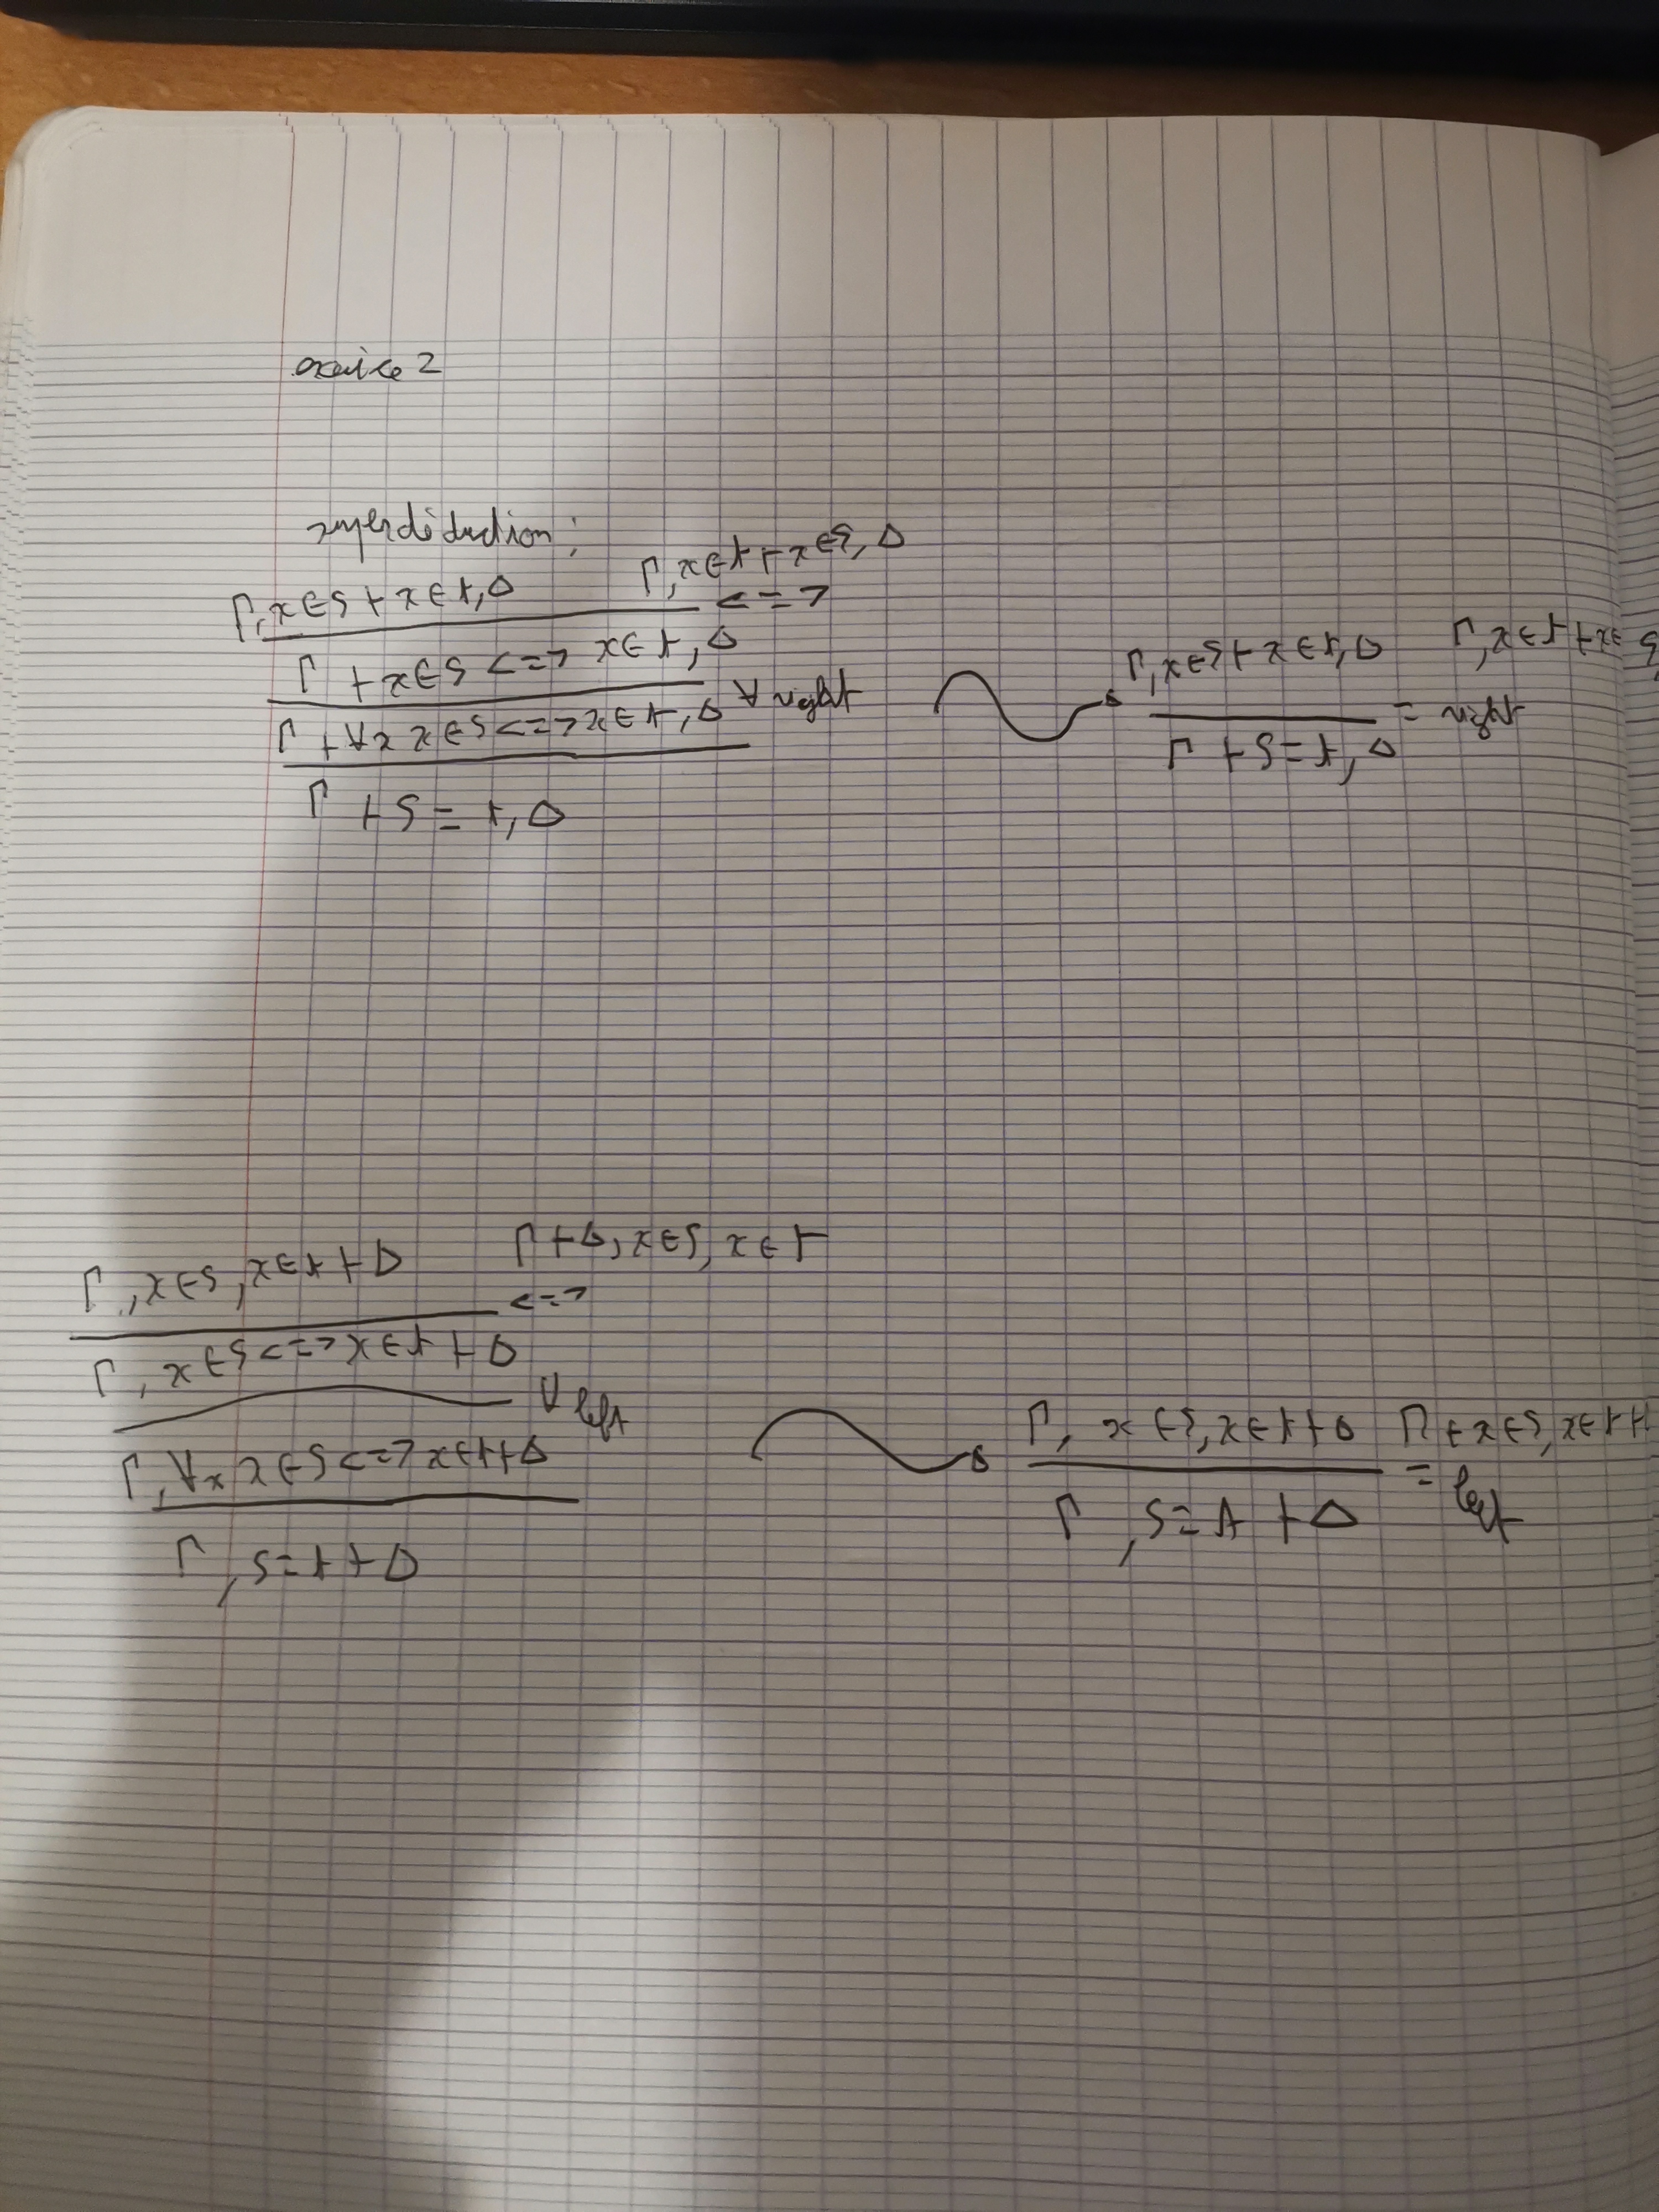 exercice 2
superdéduction :
Γ, x∈S ⊢ x∈t, Δ    Γ, x∈t ⊢ x∈S, Δ
<=>
Γ ⊢ x∈S <=> x∈t, Δ
∀ right
Γ ⊢ ∀x x∈S <=> x∈t, Δ
Γ ⊢ S = t, Δ
Γ, x∈S ⊢ x∈t, Δ    Γ, x∈t ⊢ x∈S
= right
Γ ⊢ S = t, Δ
Γ, x∈S, x∈t ⊢ Δ    Γ ⊢ Δ, x∈S, x∈t
<=>
Γ, x∈S <=> x∈t ⊢ Δ
∀ left
Γ, ∀x x∈S <=> x∈t ⊢ Δ
Γ, S = t ⊢ Δ
Γ, x∈S, x∈t ⊢ Δ    Γ ⊢ x∈S, x∈t
= left
Γ, S = t ⊢ Δ